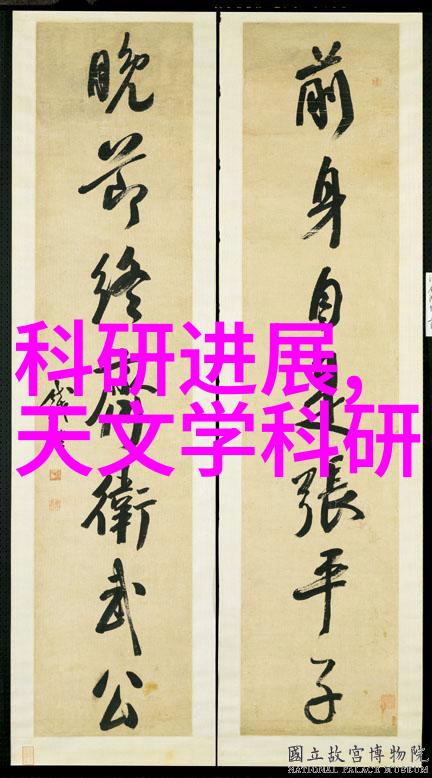 前身自是張平子
晚節終齊衛武公
科研进展,
天文学科研
國立故宮博物院
NATIONAL PALACE MUSEUM